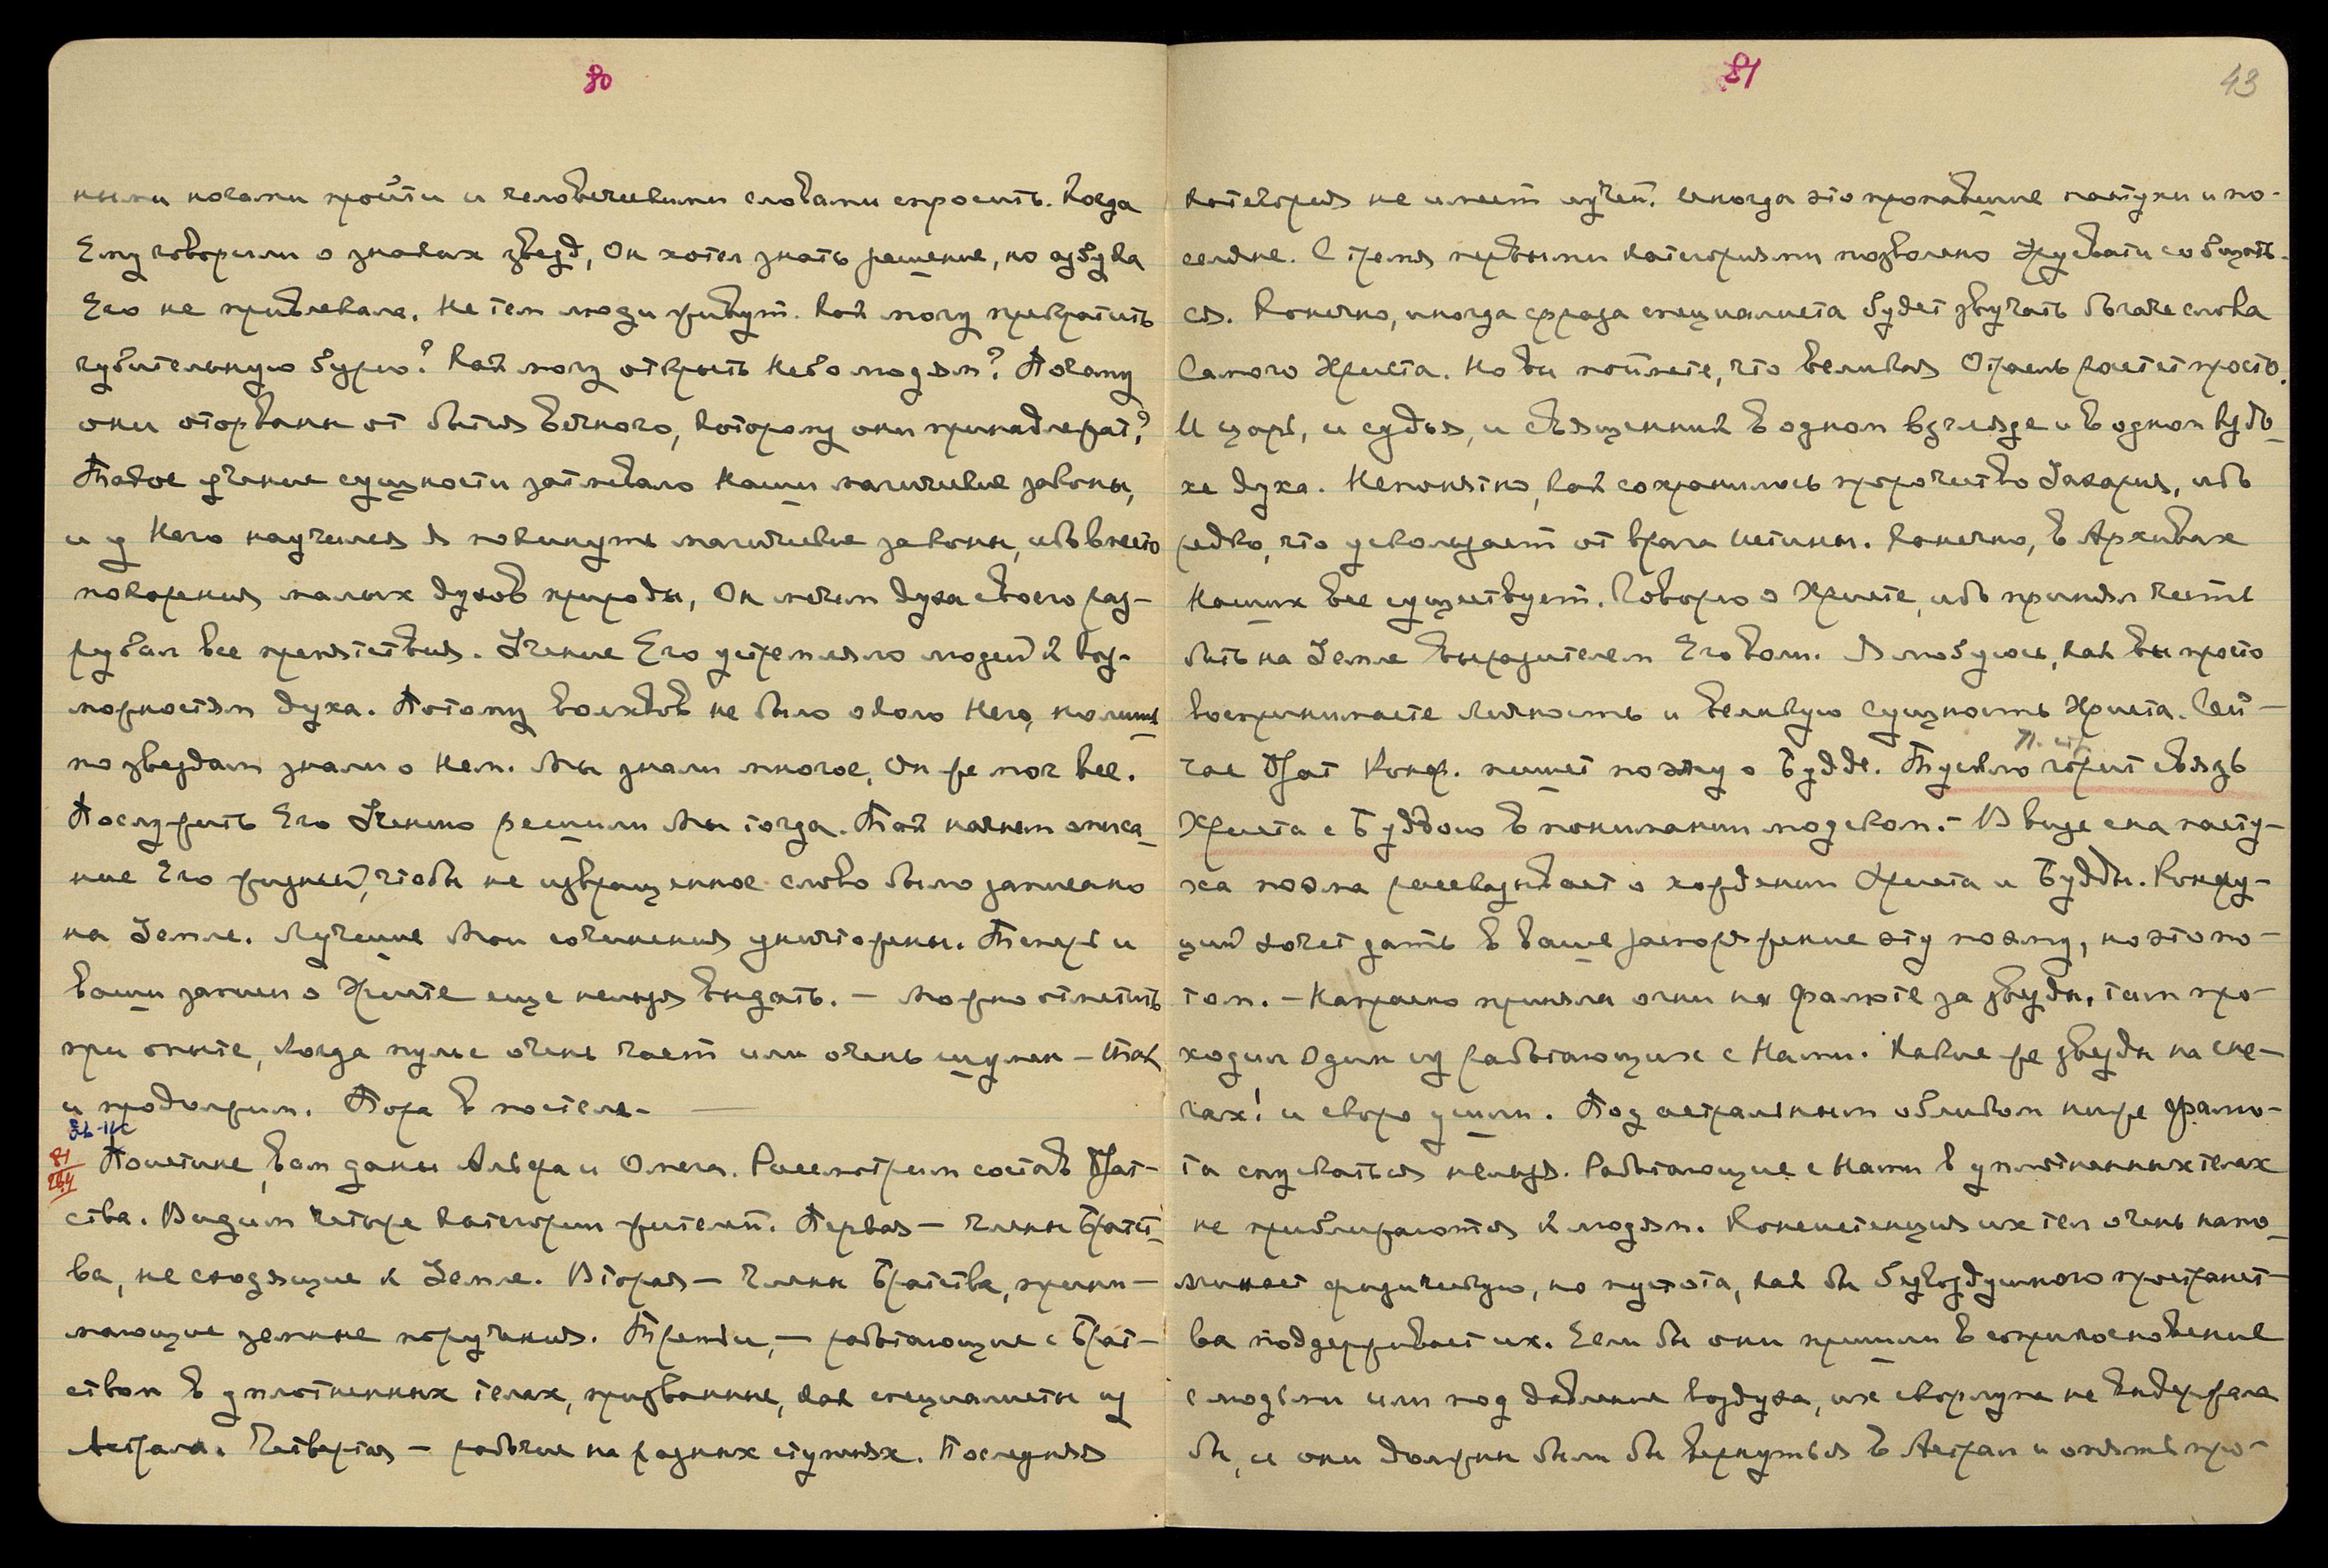 80
ными ногами пройти и человеческими словами спросить. Когда
Ему говорили о знаках звезд, Он хотел знать решение, но азбука
Его не привлекала. Не тем люди живут. Как могу прекратить
губительную бурю? Как могу открыть Небо людям? Почему
они оторваны от бытия вечного, которому они принадлежат?
Такое учение сущности затмевало Наши магические законы,
и у Него научился Я покинуть магические законы, ибо вместо
покорения малых духов природы, Он мечом духа своего раз-
рубал все препятствия. Учение Его устремляло людей к воз-
можностям духа. Потому волхвов не было около Него, но лишь
по звездам знали о Нем. Мы знали многое, Он же мог все.
Послужить Его Учению решили Мы тогда. Так начнем описа-
ние Его жизни, чтобы не извращенное слово было записано
на Земле. Лучшие Мои сочинения уничтожены. Теперь и
ваши записи о Христе еще нельзя выдать. – Можно отметить
при опыте, когда пульс очень част или очень шумен – так
и продолжим. Пора в постель. —
81
Поистине, вам даны Альфа и Омега. Рассмотрим состав Брат-
ства. Видим четыре категории жителей. Первая – члены Братст-
ва, не сходящие к Земле. Вторая – члены Братства, прини-
мающие земные поручения. Третьи, – работающие с Брат-
ством в уплотненных телах, призванные, как специалисты из
Астрала. Четвертая – рабочие на разных ступенях. Последняя
81
43
категория не имеет лучей. Иногда это пропавшие пастухи и по-
селяне. С тремя первыми категориями позволено Урусвати сообщать-
ся. Конечно, иногда фраза специалиста будет звучать богаче слова
Самого Христа. Но вы поймете, что великая Отрасль растет просто.
И царь, и судья, и священник в одном взгляде и в одном вздо-
хе духа. Непонятно, как сохранилось пророчество Захария, ибо
редко, что ускользает от врага истины. Конечно, в Архивах
Наших все существует. Говорю о Христе, ибо принял честь
быть на Земле выразителем Его воли. Я любуюсь, как вы просто
воспринимаете личность и великую сущность Христа. Сей-
час Брат Конф. пишет поэму о Будде. Тускло горит связь
Христа с Буддою в понимании людском. – В виде сна пасту-
ха поэма рассказывает о хождении Христа и Будды. Конфу-
ций хочет дать в ваше распоряжение эту поэму, но это по-
том. – Напрасно приняли огни на Фалюте за звезды, там про-
ходил Один из работающих с Нами. Какие же звезды на сне-
гах! и скоро ушли. Под астральным обликом ниже Фалю-
та спускаться нельзя. Работающие с Нами в уплотненных телах
не приближаются к людям. Консистенция их тел очень напо-
минает физическую, но пустота, как бы безвоздушного пространст-
ва поддерживает их. Если бы они пришли в соприкосновение
с людьми или под давление воздуха, их скорлупа не выдержала
бы, и они должны были бы вернуться в Астрал и опять про-